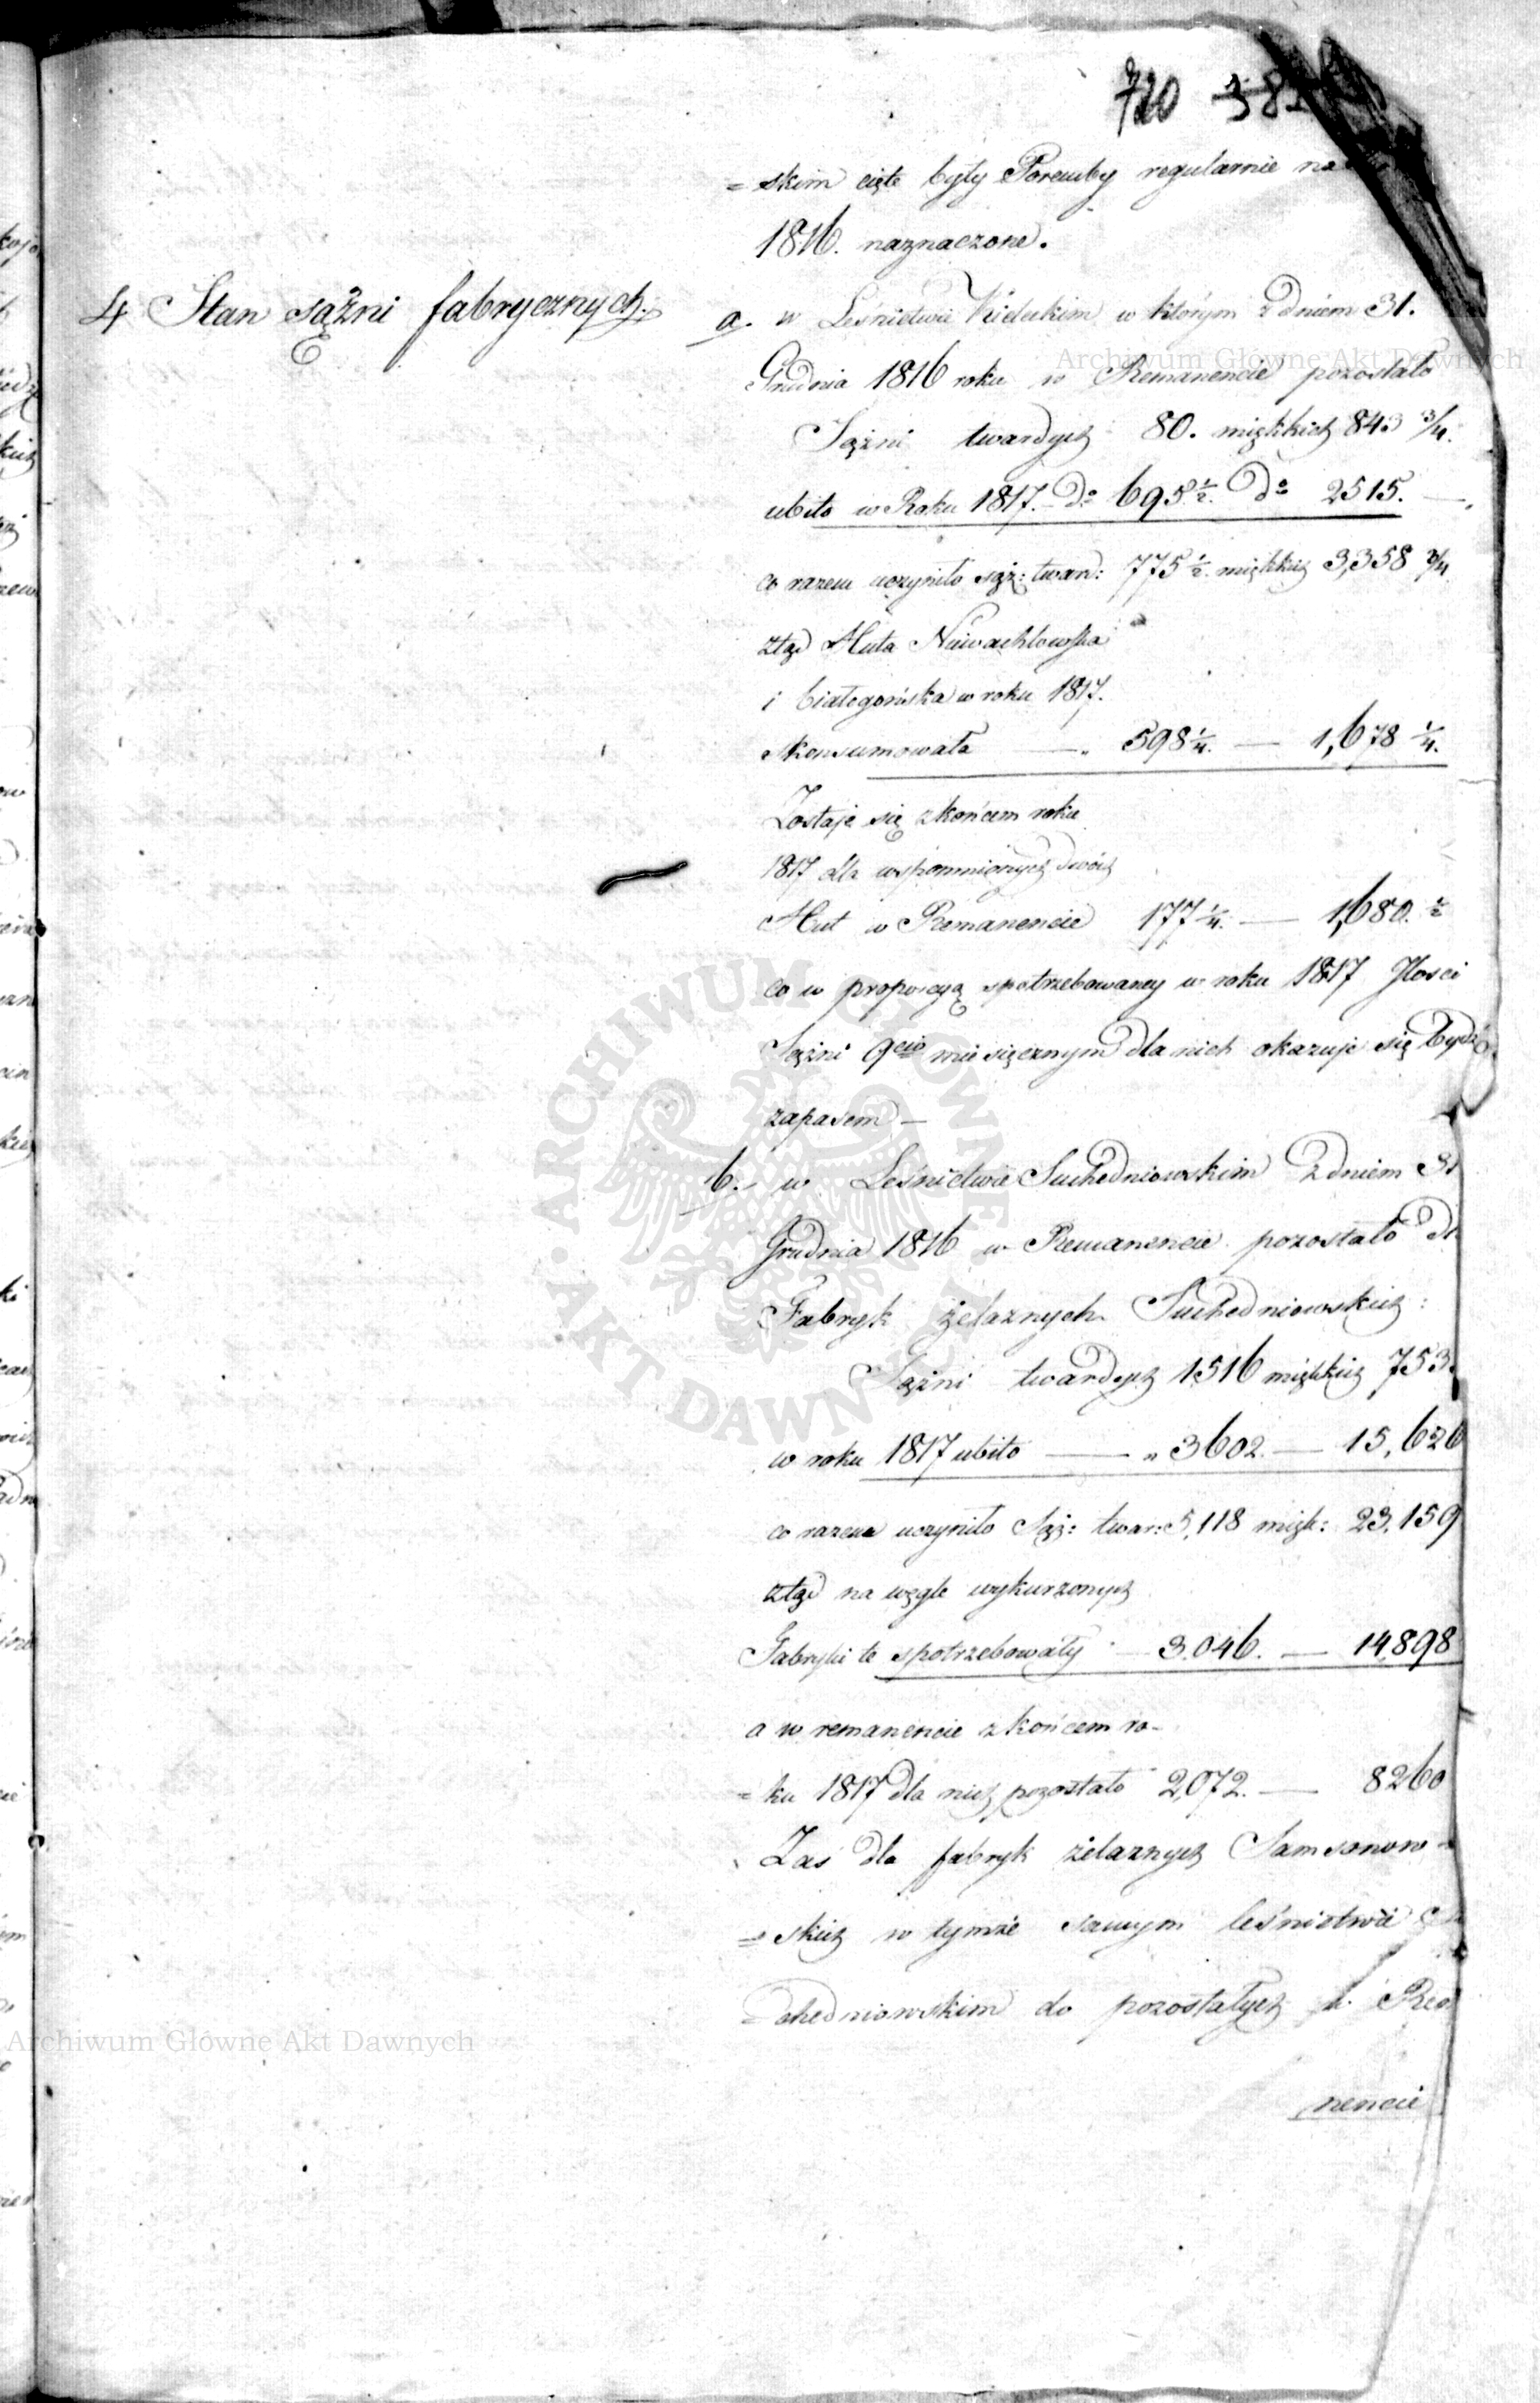 720
=skim cięte były Poręby regularnie na
1816. naznaczone.
4 Stan sążni fabrycznych.
a. w Leśnictwie Kieleckim w którym z dniem 31.
Grudnia 1816 roku w Remanencie pozostało
Sążni twardych 80. miękkich 843 3/4.
ubito w Roku 1817. Do 695 1/2. Do 2515. —
co razem uczyniło sąż: tward: 775 1/2. miękkich 3,358 3/4
ztąd Huta Niewachlowska
i białogońska w roku 1817.
skonsumowała — „ 598 1/4. — 1,678 1/4.
Zostaje się z końcem roku
1817 dla wspomnionych dwóch
Hut w Remanencie 177 1/4. — 1,680. 1/2
co w proporcyą spotrzebowaney w roku 1817 Ilosci
Sążni 9cio miesięcznym dla nich okazuje się bydź
zapasem —
b. w Leśnictwie Suchedniowskim z dniem 31
Grudnia 1816 w Remanencie pozostało dl
Fabryk żelaznych Suchedniowskich:
Sążni twardych 1516 miękkich 753
w roku 1817 ubito — „ 3602. — 15,626
co razem uczyniło Sąż: twar: 5,118 mięk: 23,159
ztąd na węgle wykurzonych
Fabryki te spotrzebowały — 3.046. — 14,898
a w remanencie z końcem ro-
=ku 1817 dla nich pozostało 2,072. — 8260
Zaś dla fabryk żelaznych Samsonow-
=skich w tymże samym leśnictwie
=chedniowskim do pozostałych w Rem
nencie
Archiwum Główne Akt Dawnych
ARCHIWUM GŁÓWNE AKT DAWNYCH
Archiwum Główne Akt Dawnych